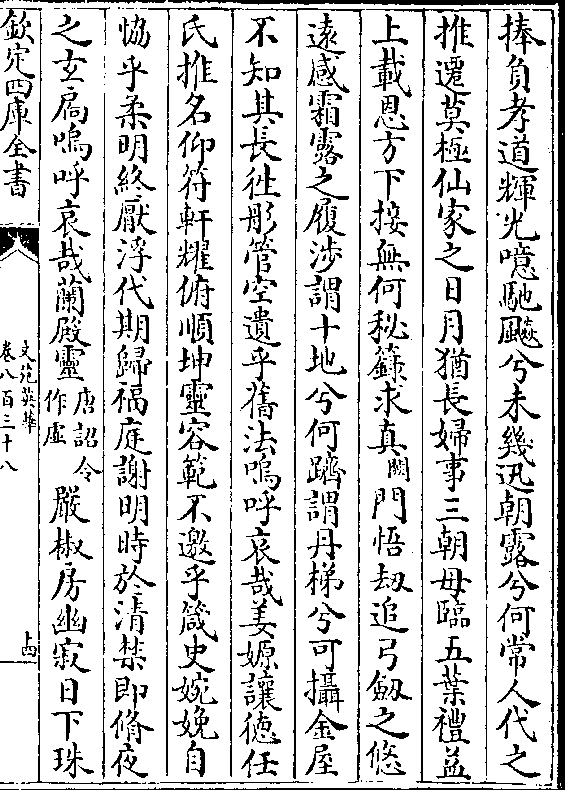 捧負孝道輝光噫馳飈兮未幾迅朝露兮何常人代之
推遷莫極仙家之日月猶長婦事三朝母臨五葉禮益
上載恩方下接無何秘籙求真闕門悟刼追弓劒之悠
遠感霜露之履涉謂十地兮何躋謂丹梯兮可攝金屋
不知其長徃彤管空遺乎舊法嗚呼哀哉姜嫄讓徳任
氏推名仰符軒耀俯順坤靈容範不邀乎箴史婉娩自
恊乎柔明終厭浮代期歸福庭謝明時於清禁即脩夜
之玄扃嗚呼哀哉蘭殿靈唐詔令作虛嚴椒房幽寂日下珠
欽定四庫全書
文苑英華
卷八百三十八
十四